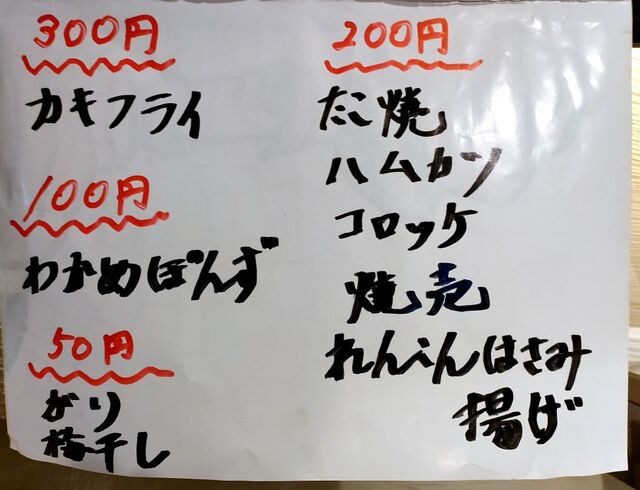 300円
カキフライ
100円
わかめぽんず
50円
がり
梅干し
200円
たこ焼
ハムカツ
コロッケ
焼売
れんこんはさみ
揚げ